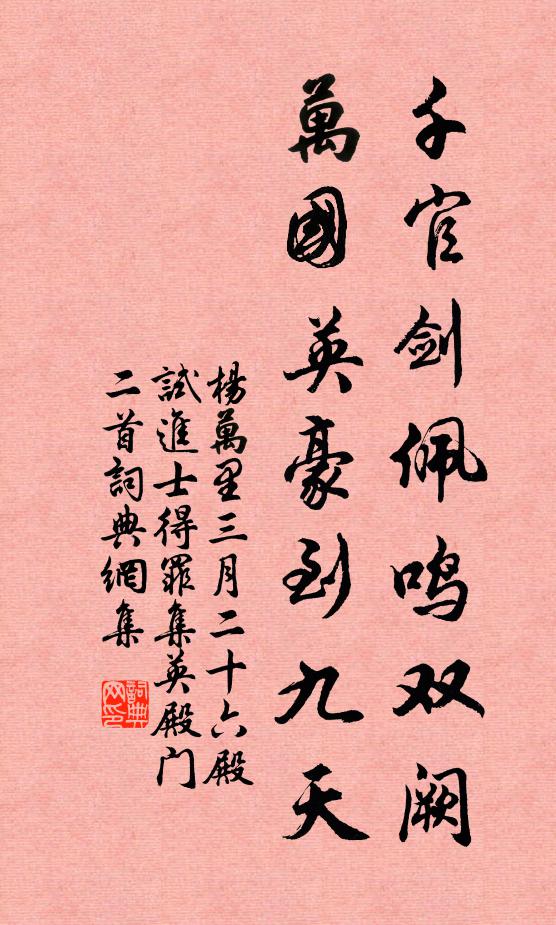 千官剑佩鸣双阙
萬國英豪到九天
楊萬里三月二十六殿
試進士待罪集英殿门
二首詞典網集
詞典网印